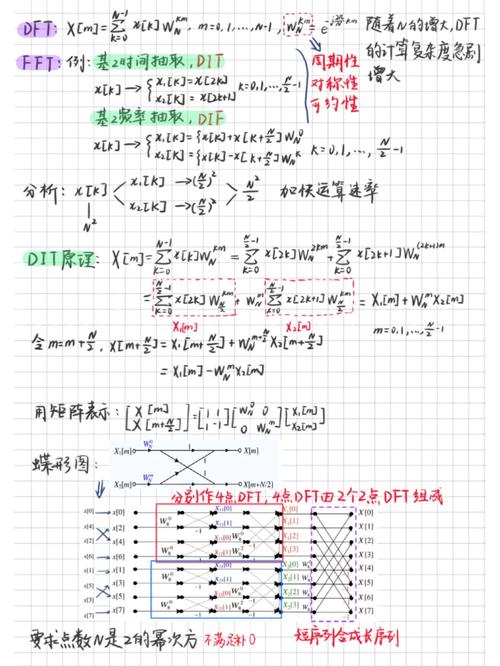 DFT: X[m]=∑_{k=0}^{N-1} x[k]W_N^{km}, m=0,1,...,N-1, W_N^{km}=e^{-j2π/N km} 随着N的增大,DFT
的计算复杂度急剧
增大
FFT: 例: 基2时间抽取, DIT
x[k]→{x₁[k]=x[2k]
x₂[k]=x[2k+1] k=0,1,...,N/2-1
周期性
对称性
可约性
基2频率抽取, DIF
x[k]→{x₁[k]={x[k]+x[k+N/2]}W_N^0
x₂[k]={x[k]-x[k+N/2]}W_N^k k=0,1,...,N/2-1
分析: x[k] x₁[k]→(N/2)² N²/2 加快运算速率
x₂[k]→(N/2)²
N²
DIT原理: X[m]=∑_{k=0}^{N-1} x[k]W_N^{km}=∑_{k=0}^{N/2-1} x[2k]W_N^{2km}+∑_{k=0}^{N/2-1} x[2k+1]W_N^{(2k+1)m}
=∑_{k=0}^{N/2-1} x[2k]W_{N/2}^{km}+W_N^m∑_{k=0}^{N/2-1} x[2k+1]W_{N/2}^{km}=X₁[m]+W_N^mX₂[m]
X₁[m] X₂[m] m=0,1,...,N/2-1
令m=m+N/2, X[m+N/2]=X₁[m+N/2]+W_N^{m+N/2}X₂[m+N/2]
=X₁[m]-W_N^mX₂[m]
用矩阵表示: [X[m] X[m+N/2]]=[1 1 1 -1][W_N^0 0 0 W_N^m][X₁[m] X₂[m]]
蝶形图:
X₁[m] W_N^0 1 X[m]
X₂[m] W_N^m -1 X[m+N/2]
分别作4点DFT,4点DFT由2个2点DFT组成
x[0] x[0] X₁[0] X[0]
x[4] x[2] X₁[1] X[1]
x[2] x[4] X₁[2] X[2]
x[6] x[6] X₁[3] X[3]
x[1] x[1] X₂[0] X[4]
x[5] x[3] X₂[1] X[5]
x[3] x[5] X₂[2] X[6]
x[7] x[7] X₂[3] X[7]
要求点数N是2的幂次方 不满足补0 短序列合成长序列